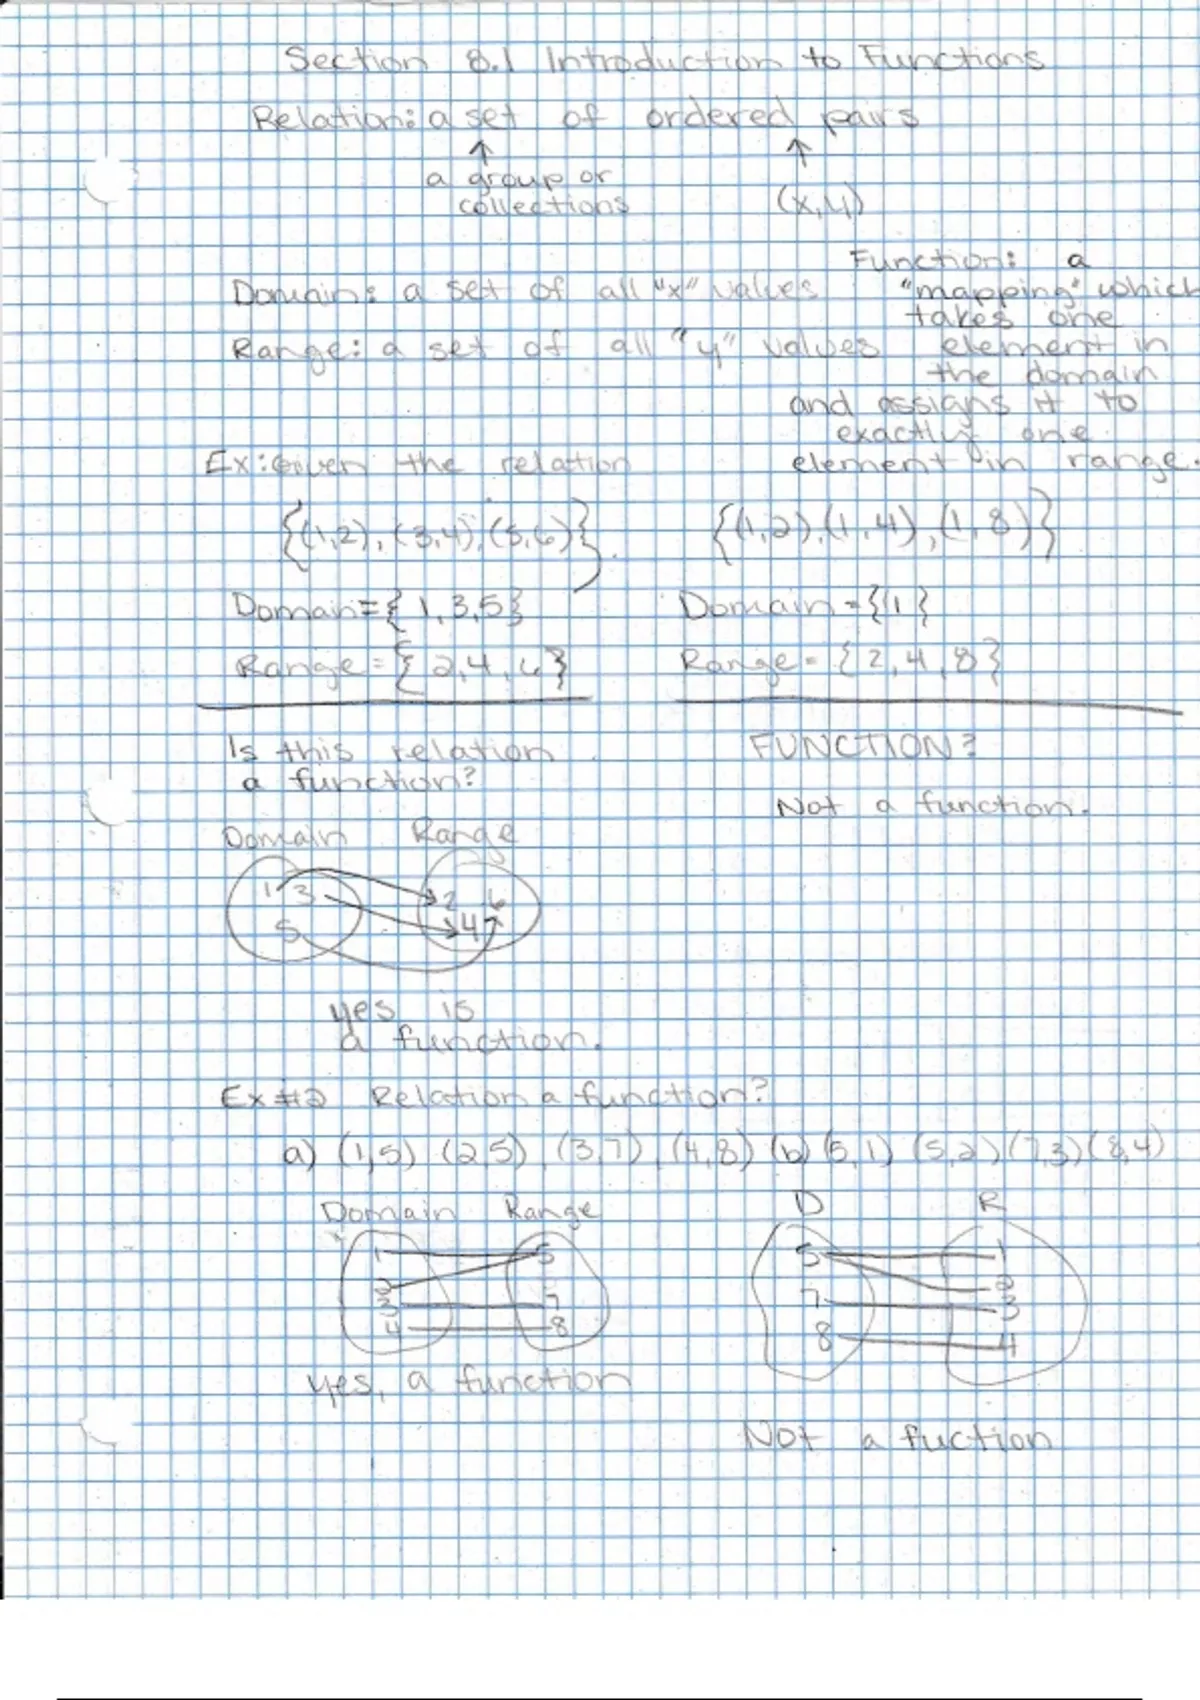 Section 8.1 Introduction to Functions
Relation: a set of ordered pairs
↑ ↑
a group or
collections (x,y)
Function: a
"mapping" which
takes one
element in
the domain
and assigns it to
exactly one
element in range.
Domain: a set of all "x" values
Range: a set of all "y" values
Ex: Given the relation
{(1,2), (3,4), (5,6)}
Domain = { 1, 3, 5 }
Range = { 2, 4, 6 }
{(1,2), (1,4), (1,8)}
Domain = {1}
Range = { 2, 4, 8 }
Is this relation
a function?
Domain Range
1 3 2 6
5 4
yes is
a function.
FUNCTION?
Not a function.
Ex #2 Relation a function?
a) (1,5) (2,5) (3,7), (4,8) (b) (5,1) (5,2) (7,3) (8,4)
Domain Range
1 5
2
3 7
4 8
yes, a function
D R
5 1
2
7 3
8 4
Not a fuction